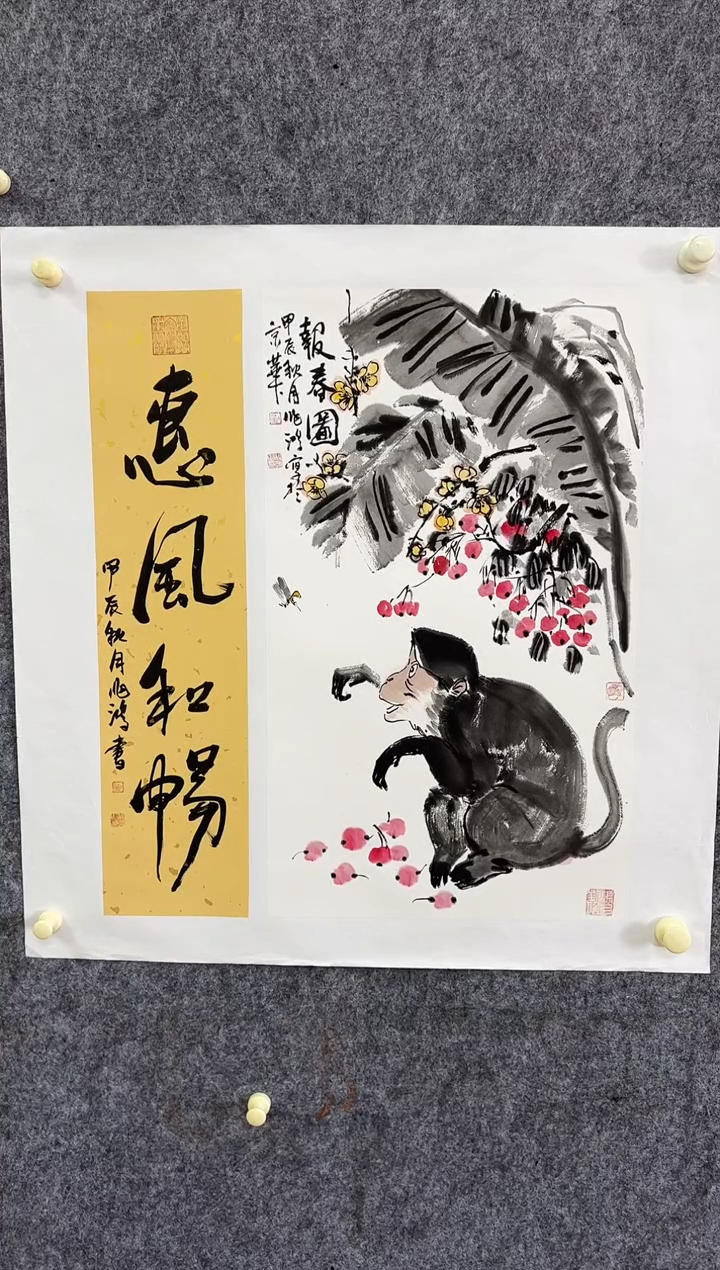 報春圖
甲辰秋月兆鴻寫於
京華
惠風和暢
甲辰秋月兆鴻書